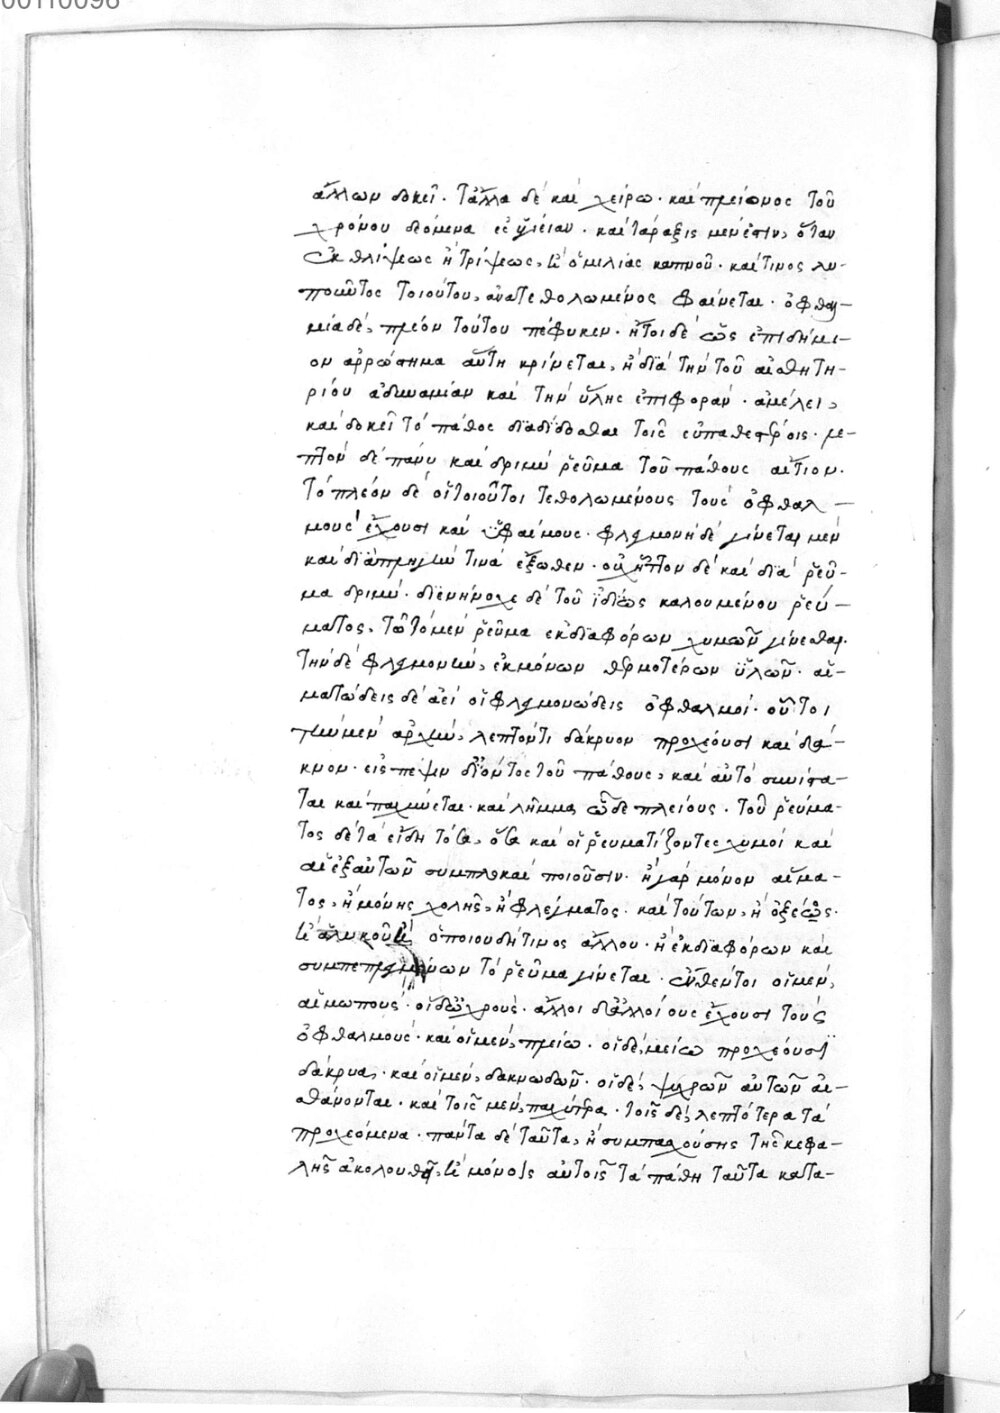 00110096
ἄλλων δοκεῖ· τἄλλα δὲ καὶ χείρω· καὶ πλείονος τοῦ
χρόνου δεόμενα ἐς ὑγιείαν· καὶ τάραξις μέν ἐστιν, ὅταν
ἐκ θλίψεως ἢ τρίψεως, ἢ ὁμιλίας καπνοῦ· καί τινος λυ-
ποῦντος τοιούτου, ἀνατεθολωμένος φαίνεται· ὀφθαλ-
μία δὲ, πλέον τούτου πέφυκεν· ἤτοι δὲ ὡς ἐπιδήμι-
ον ἀρρώστημα αὕτη κρίνεται, ἢ διὰ τὴν τοῦ αἰσθητη-
ρίου ἀδυναμίαν καὶ τὴν ὕλης ἐπιφοράν· ἀμέλει,
καὶ δοκεῖ τὸ πάθος διαδίδοσθαι τοῖς εὐπαθεστέροις· λε-
πτὸν δὲ πάνυ καὶ δριμὺ ῥεῦμα τοῦ πάθους αἴτιον.
τὸ πλέον δὲ οἱ τοιοῦτοι τεθολωμένους τοὺς ὀφθαλ-
μοὺς ἔχουσι καὶ ὑφαίμους· φλεγμονὴ δὲ γίνεται μὲν
καὶ διὰ πληγήν τινα ἔξωθεν· οὐχ ἧττον δὲ καὶ διὰ ῥεῦ-
μα δριμύ· διενήνοχε δὲ τοῦ ἰδίως καλουμένου ῥεύ-
ματος, τῷ τὸ μὲν ῥεῦμα ἐκ διαφόρων χυμῶν γίνεσθαι.
τὴν δὲ φλεγμονὴν, ἐκ μόνων θερμοτέρων ὑλῶν· αἱ-
ματώδεις δὲ ἀεὶ οἱ φλεγμονώδεις ὀφθαλμοί· οὗτοι
τὴν μὲν ἀρχὴν, λεπτόν τι δάκρυον προχέουσι καὶ δα-
κνον· εἰς πέψιν δ' ἰόντος τοῦ πάθους, καὶ αὐτὸ συνίστα-
ται καὶ παχύνεται· καὶ λήμμα ὧδε πλείους· τοῦ ῥεύμα-
τος δὲ τὰ εἴδη τόσα, ὅσα καὶ οἱ ῥευματίζοντες χυμοὶ καὶ
αἱ ἐξ αὐτῶν συμπλοκαὶ ποιοῦσιν· ἢ γὰρ μόνον αἵμα-
τος, ἢ μόνης χολῆς, ἢ φλέγματος· καὶ τούτων, ἢ ὀξέως·
ἢ ἁλυκοῦ ἢ ὁποιουδήτινος ἄλλου· ἢ ἐκ διαφόρων καὶ
συμπεπλεγμένων τὸ ῥεῦμα γίνεται· ἐνθέντοι οἱ μὲν,
αἱμωπούς· οἱ δ' ὠχρούς· ἄλλοι δ' ἀλλοίους ἔχουσι τοὺς
ὀφθαλμούς· καὶ οἱ μὲν, πλείω· οἱ δὲ, μείω προχέουσι
δάκρυα· καὶ οἱ μὲν, δακνωδῶν· οἱ δὲ, ψυχρῶν αὐτῶν αἰ-
σθάνονται· καὶ τοῖς μὲν, παχύτερα· τοῖς δὲ, λεπτότερα τὰ
προχεόμενα· πάντα δὲ ταῦτα, ἢ συμπασχούσης τῆς κεφα-
λῆς ἀκολουθεῖ, ἢ μόνοις αὐτοῖς τὰ πάθη ταῦτα κατα-